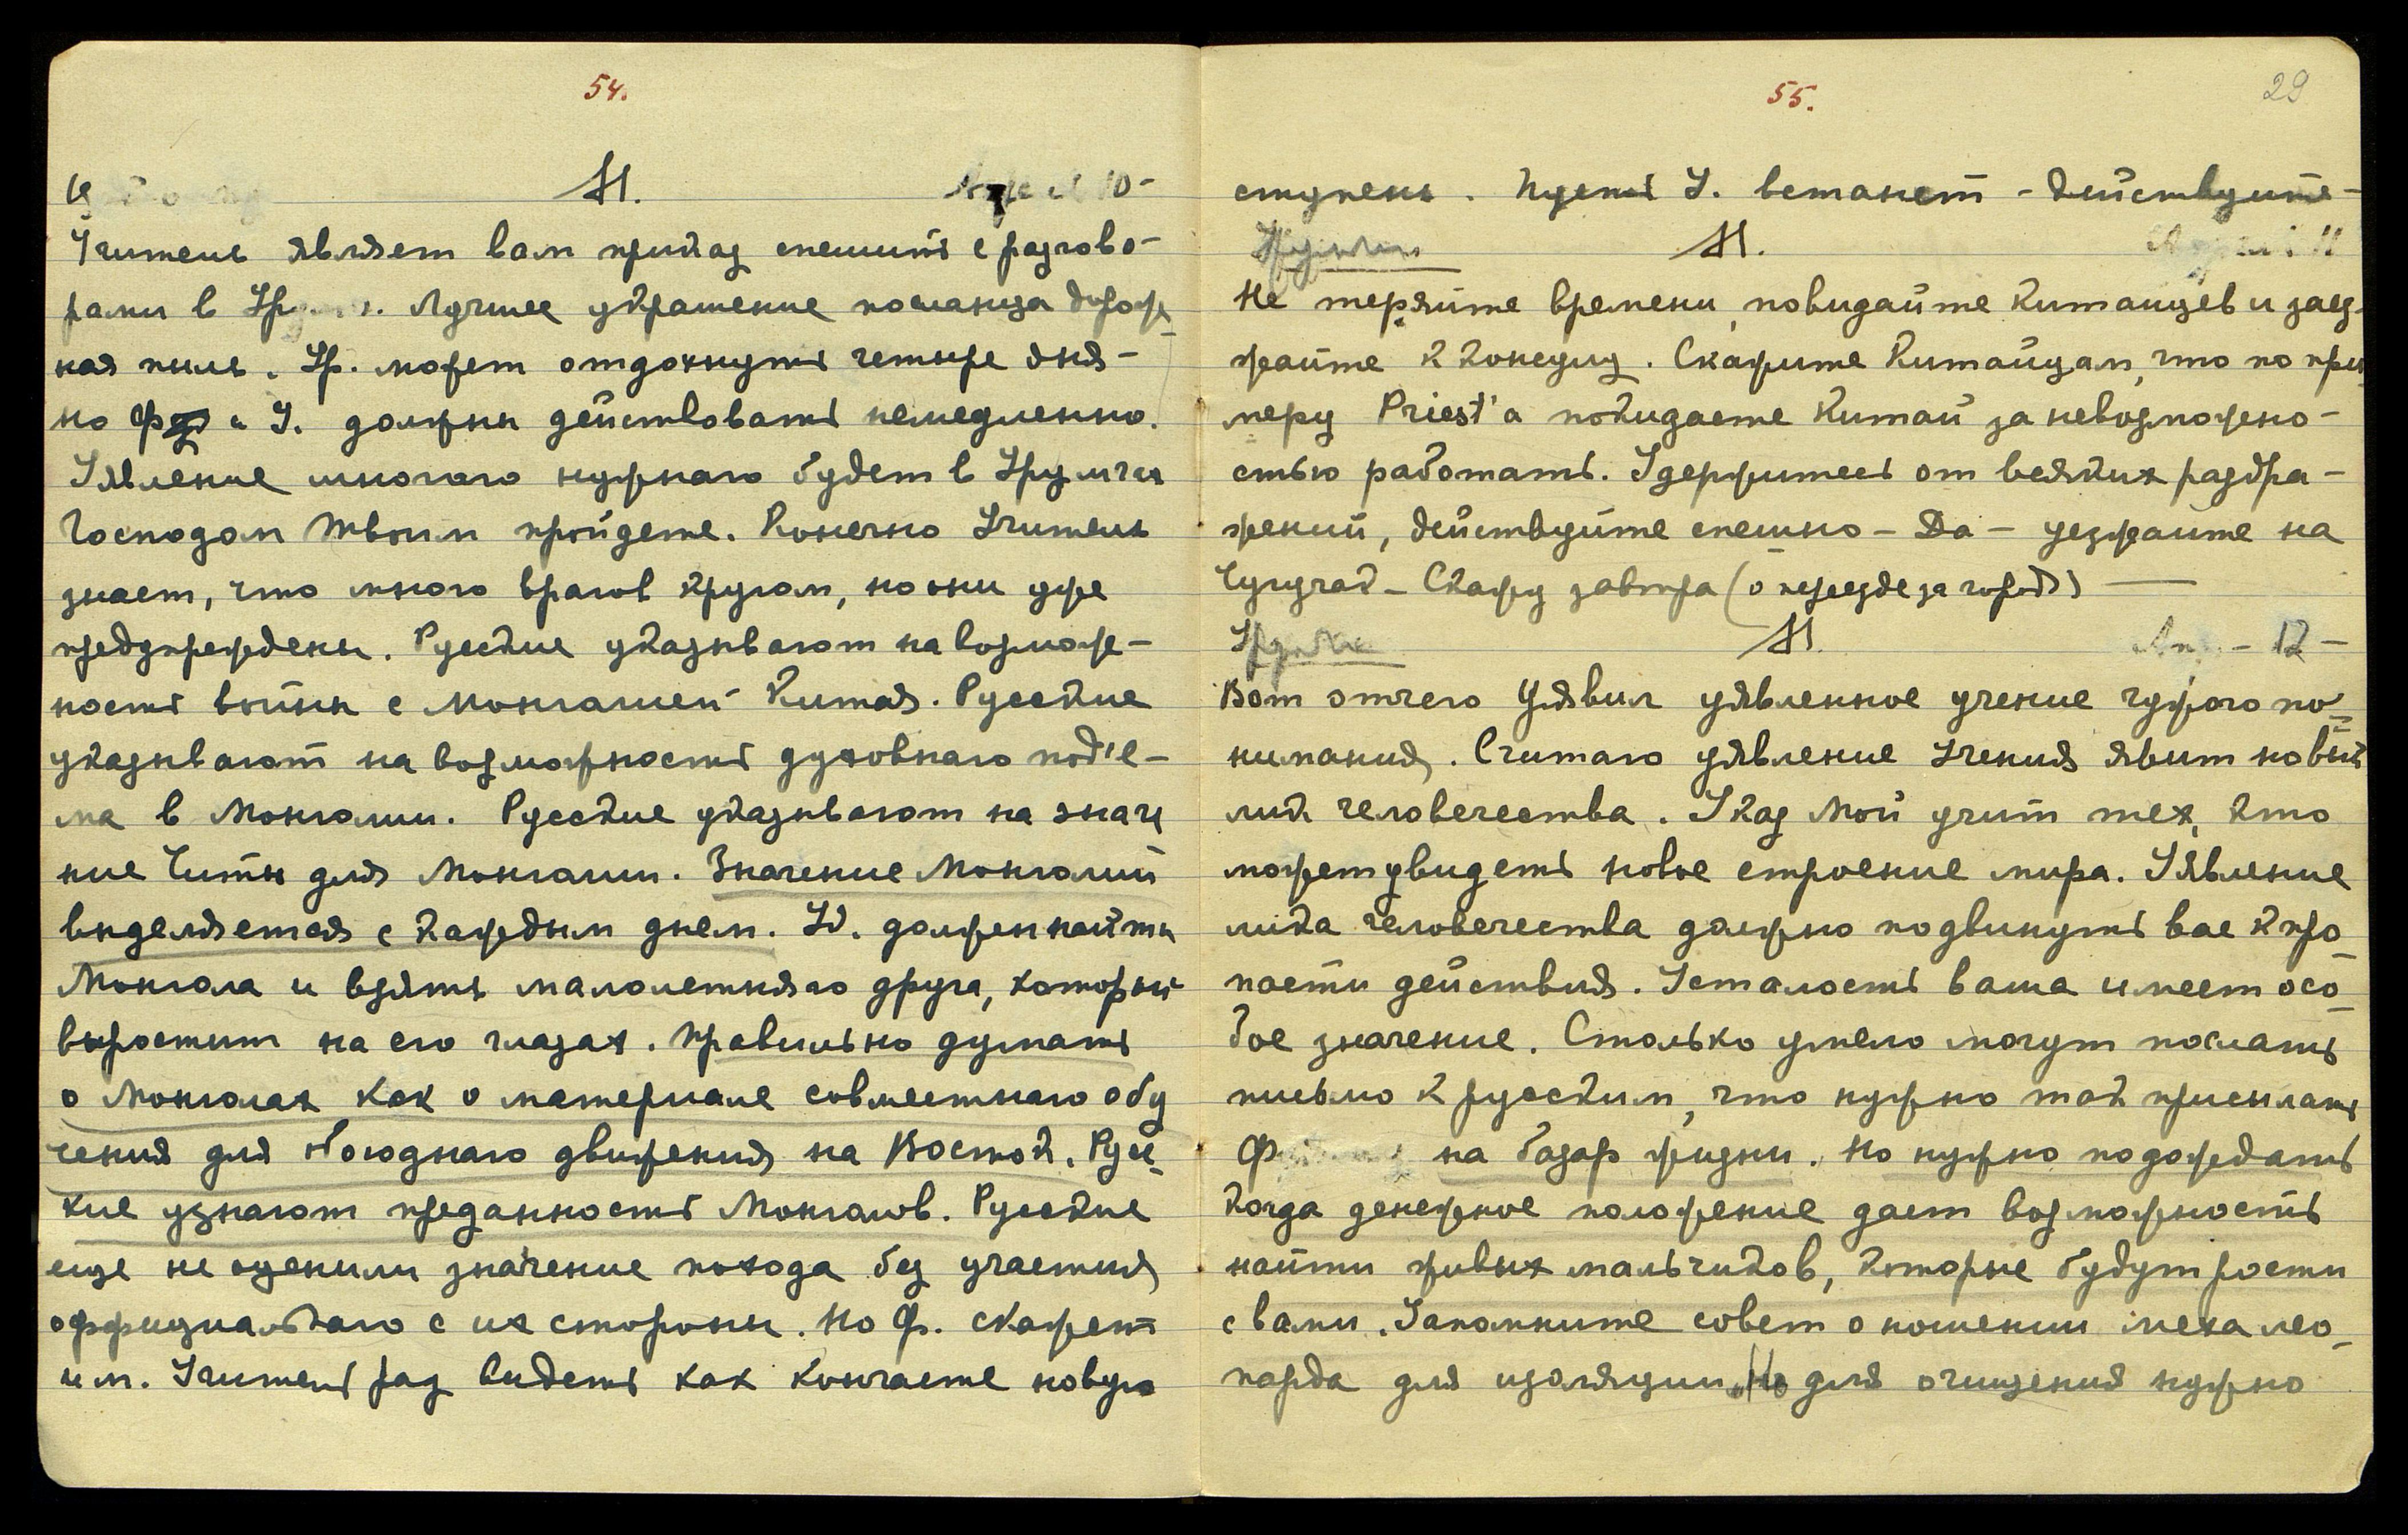 54.
М. 10 –
Учитель являет вам приказ спешить с разгово-
рами в Ур. Лучшее украшение посланца дорож
ная пыль. Ур. может отдохнуть четыре дня –
но и У. должны действовать немедленно.
Уявление многого нужнаго будет в Урумчи
Господом Твоим пройдете. Конечно Учитель
знает, что много врагов кругом, но они уже
предупреждены. Русские указывают на возмож-
ность войны с Монголией Китая. Русские
указывают на возможность духовнаго под'е-
ма в Монголии. Русские указывают на значе
ние Читы для Монголии. Значение Монголии
выделяется с каждым днем. должен найти
Монгола и взять малолетняго друга, который
выростит на его глазах. Правильно думать
о Монголах как о материале совместнаго обу
чения для движения на Восток. Русс-
кие узнают преданность Монголов. Русские
еще не оценили значение похода без участия
оффициальнаго с их стороны. Но Ф. скажет
им. Учитель рад видеть как кончаете новую
55.
29
ступень. Пусть У. встанет – действуйте –
М. 11
Не теряйте времени, повидайте Китайцев и заез-
жайте к консулу. Скажите Китайцам, что по при
меру Priest'а покидаете Китай за невозможно-
стью работать. Удержитесь от всяких раздра-
жений, действуйте спешно – Да – уезжайте на
Чугучак – Скажу завтра (о переезде за город)
М. 12 –
Вот отчего Уявил уявленное учение чужого по-
нимания. Считаю уявление Учения явит новый
лик человечества. Указ Мой учит тех, кто
может увидеть новое строение мира. Уявление
лика человечества должно подвинуть вас к про-
пасти действия. Усталость ваша имеет осо-
бое значение. Столько умело могут послать
письмо к русским, что нужно так присылать
Ф на базар жизни. Но нужно подождать
когда денежное положение дает возможность
найти живых мальчиков, которые будут рости
с вами. Запомните совет о ношении меха лео-
парда для изоляции. Но для очищения нужно